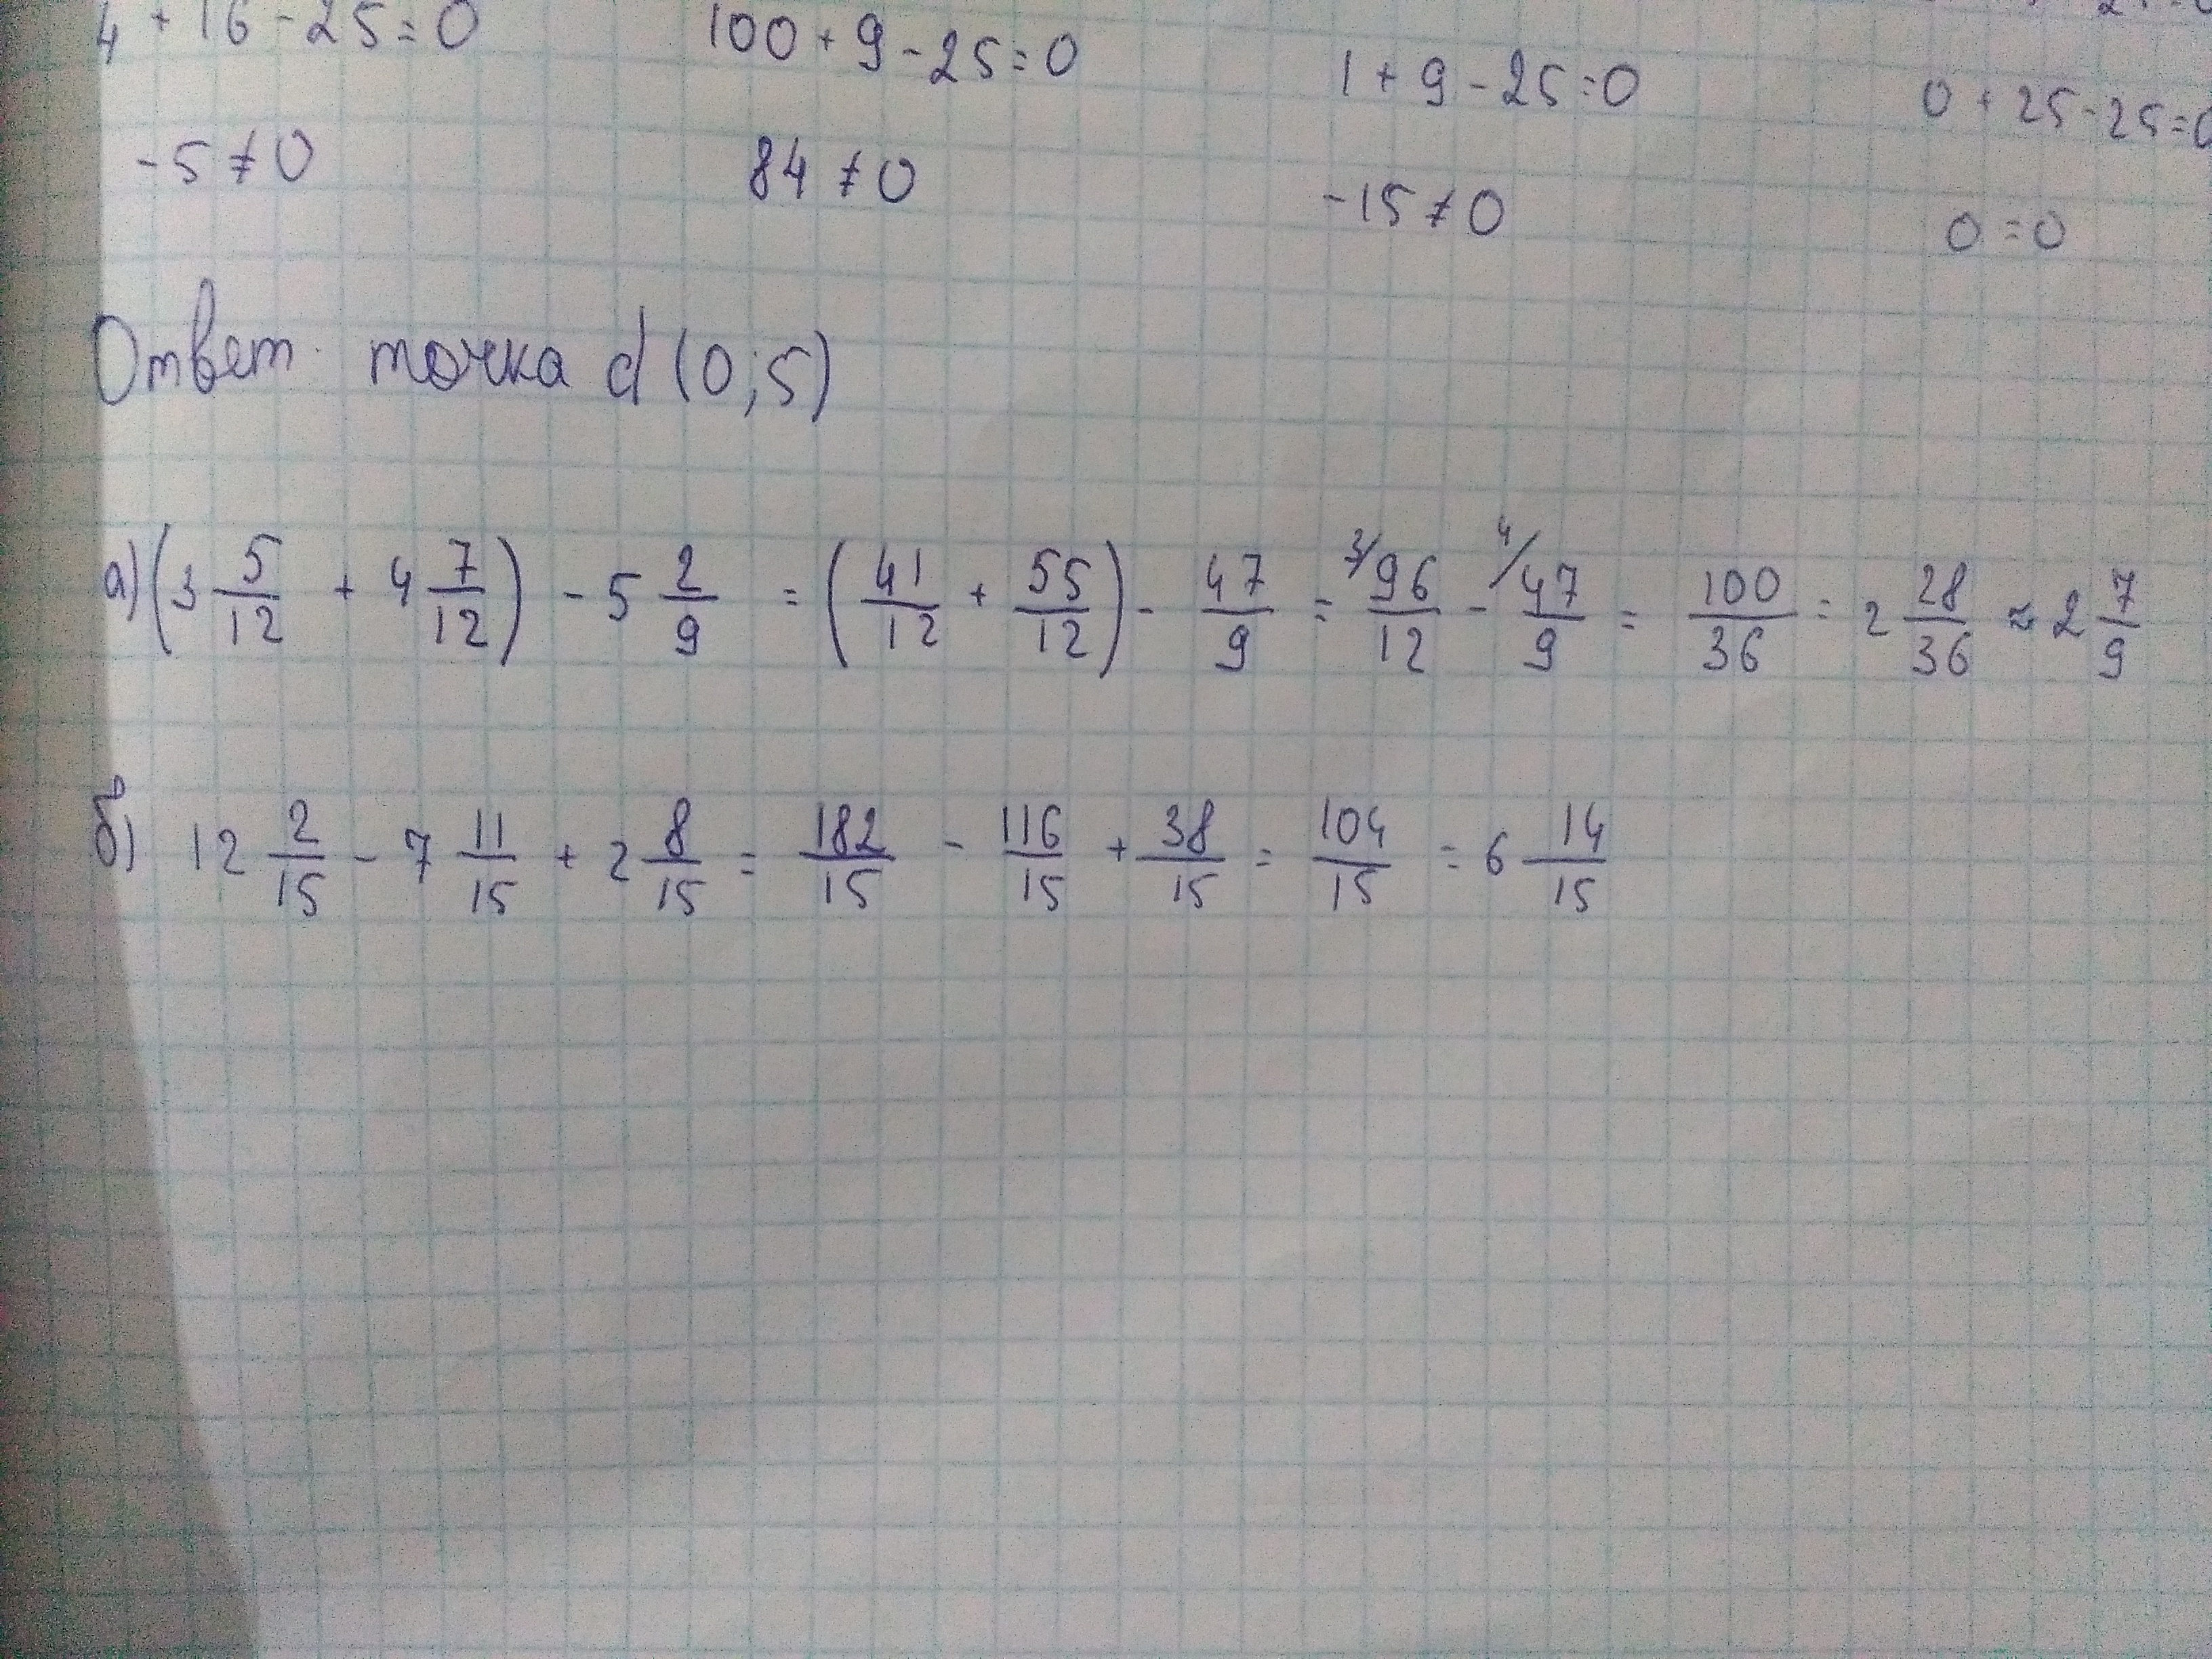 4 + 16 - 25 = 0 100 + 9 - 25 = 0 1 + 9 - 25 = 0 0 + 25 - 25 = 0
-5 ≠ 0 84 ≠ 0 -15 ≠ 0 0 = 0
Ответ. точка d (0; 5)
а) (3 5/12 + 4 7/12) - 5 2/9 = (41/12 + 55/12) - 47/9 = 3/ 96/12 - 4/ 47/9 = 100/36 = 2 28/36 ≈ 2 7/9
б) 12 2/15 - 7 11/15 + 2 8/15 = 182/15 - 116/15 + 38/15 = 104/15 = 6 14/15